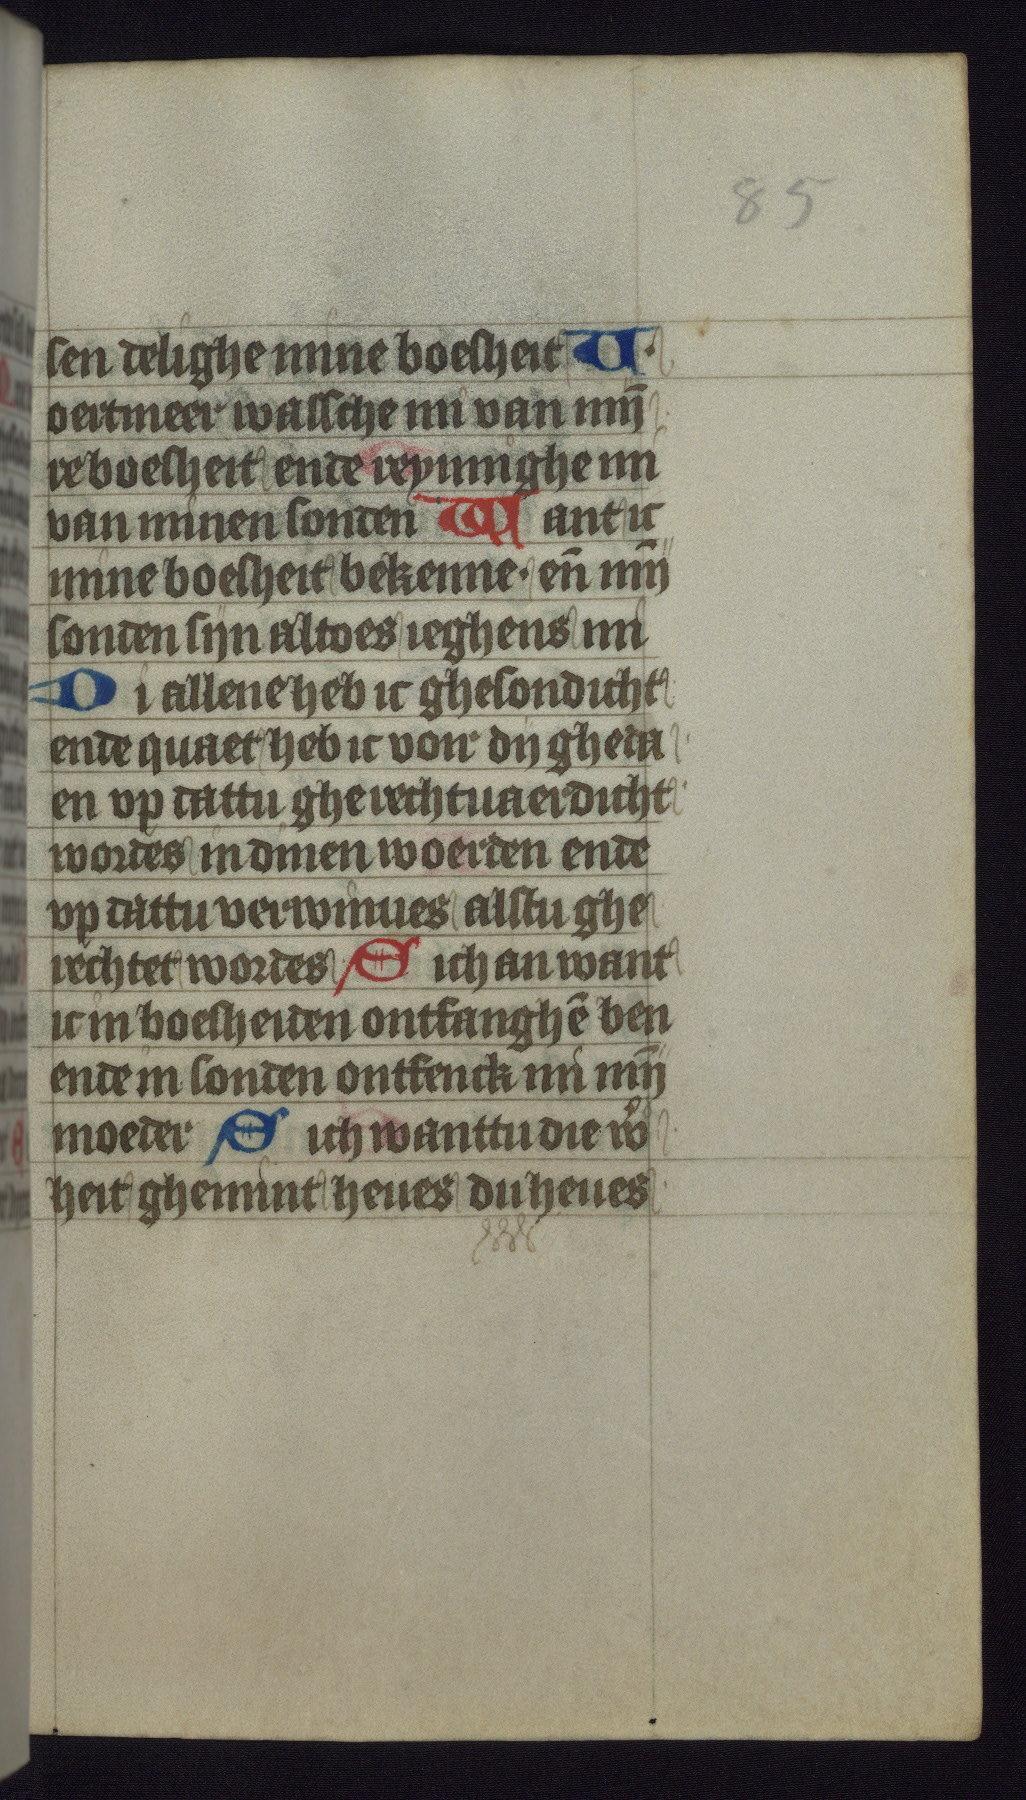 85
sen delighe mine boesheit V
oertmeer wassche mi van mijn̄
re boesheit ende reynnighe mi
van minen sonden Want ic
mine boesheit bekenne· en̄ mijn̄
sonden sijn altoes ieghens mi
Di allene heb ic ghesondicht
ende quaet heb ic voir dij gheda
en vp dattu gherechtuaerdicht
wordes in dinen woerden ende
vp dattu verwinnes alstu ghe
rechtet wordes Sich an want
ic in boesheiden ontfanghē ben
ende in sonden ontfenck mi mijn̄
moeder Sich wanttu die wͦ
heit ghemint heues du heues